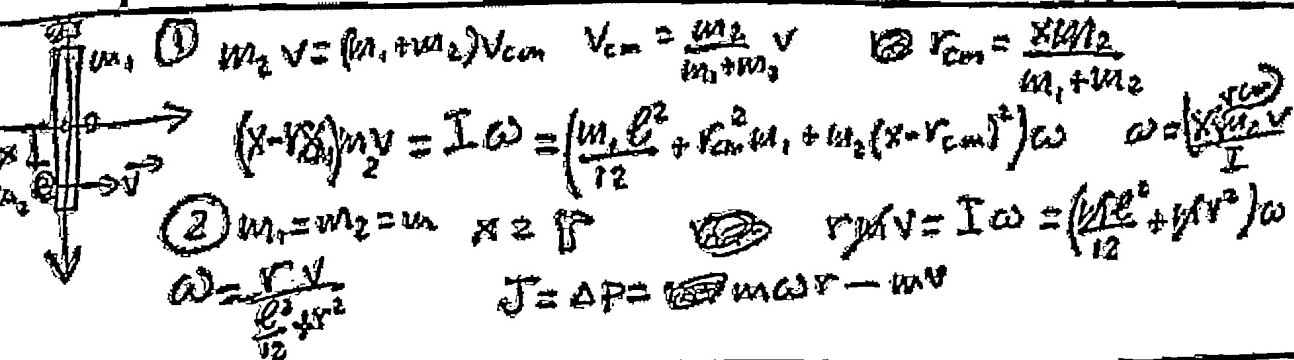 m₁ ① m₂ v = (m₁+m₂)Vcm Vcm = m₂/(m₁+m₂) v rcm = xm₂/(m₁+m₂)
(x-rcm)m₂v = Iω = (m₁ℓ²/12 + rcm² m₁ + m₂(x-rcm)²)ω ω = (x-rcm)m₂v/I
x m₂ v⃗
② m₁=m₂=m x = r rmv = Iω = (mℓ²/12 + mr²)ω
ω = rv/(ℓ²/12+r²) J = ΔP = mωr - mv